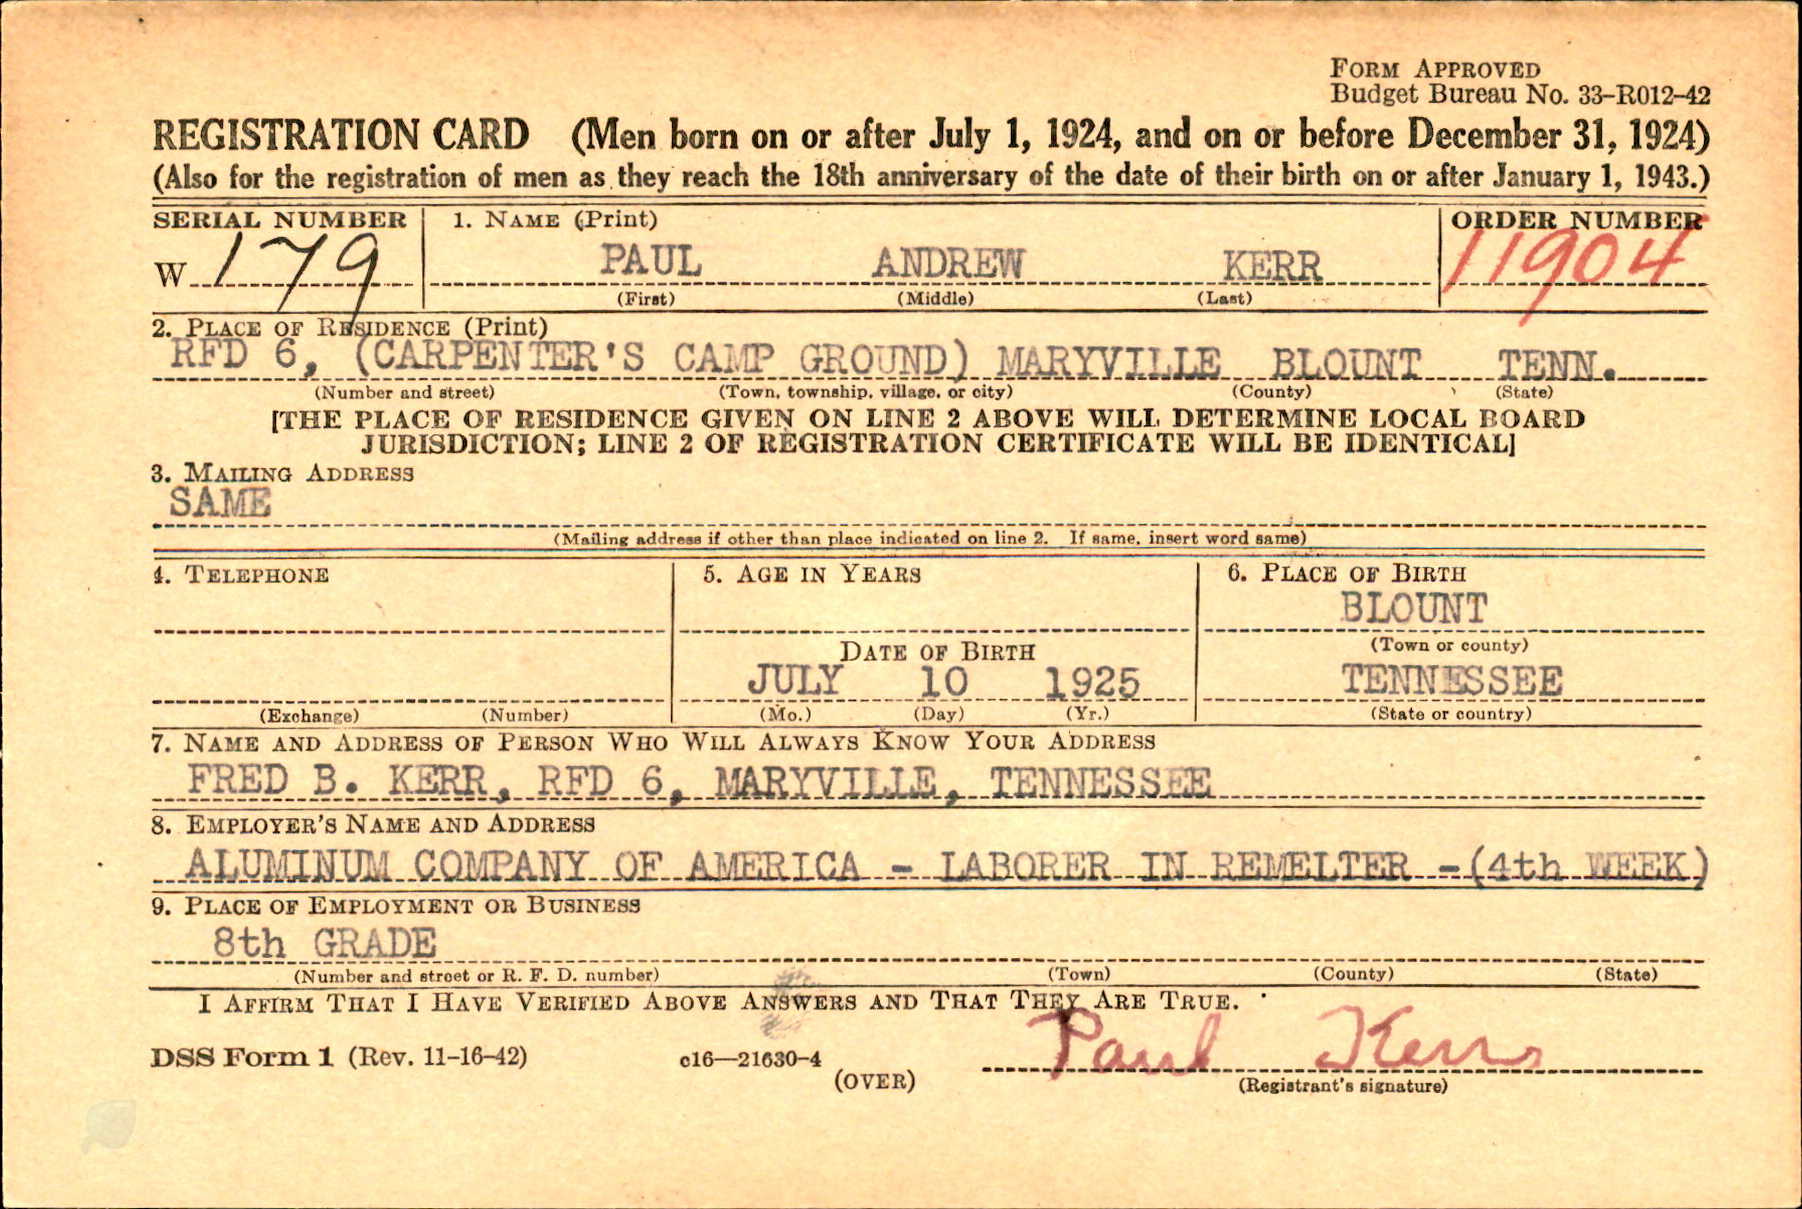 FORM APPROVED
Budget Bureau No. 33-R012-42
REGISTRATION CARD (Men born on or after July 1, 1924, and on or before December 31, 1924)
(Also for the registration of men as they reach the 18th anniversary of the date of their birth on or after January 1, 1943.)
SERIAL NUMBER 1. NAME (Print) ORDER NUMBER
W 179 PAUL ANDREW KERR 11904
(First) (Middle) (Last)
2. PLACE OF RESIDENCE (Print)
RFD 6, (CARPENTER'S CAMP GROUND) MARYVILLE BLOUNT TENN.
(Number and street) (Town, township, village, or city) (County) (State)
[THE PLACE OF RESIDENCE GIVEN ON LINE 2 ABOVE WILL DETERMINE LOCAL BOARD
JURISDICTION; LINE 2 OF REGISTRATION CERTIFICATE WILL BE IDENTICAL]
3. MAILING ADDRESS
SAME
(Mailing address if other than place indicated on line 2. If same, insert word same)
4. TELEPHONE 5. AGE IN YEARS 6. PLACE OF BIRTH
BLOUNT
(Town or county)
DATE OF BIRTH
JULY 10 1925 TENNESSEE
(Exchange) (Number) (Mo.) (Day) (Yr.) (State or country)
7. NAME AND ADDRESS OF PERSON WHO WILL ALWAYS KNOW YOUR ADDRESS
FRED B. KERR, RFD 6, MARYVILLE, TENNESSEE
8. EMPLOYER'S NAME AND ADDRESS
ALUMINUM COMPANY OF AMERICA - LABORER IN REMELTER -(4th WEEK)
9. PLACE OF EMPLOYMENT OR BUSINESS
8th GRADE
(Number and street or R. F. D. number) (Town) (County) (State)
I AFFIRM THAT I HAVE VERIFIED ABOVE ANSWERS AND THAT THEY ARE TRUE.
Paul Kerr
DSS Form 1 (Rev. 11-16-42) c16—21630-4
(OVER) (Registrant's signature)